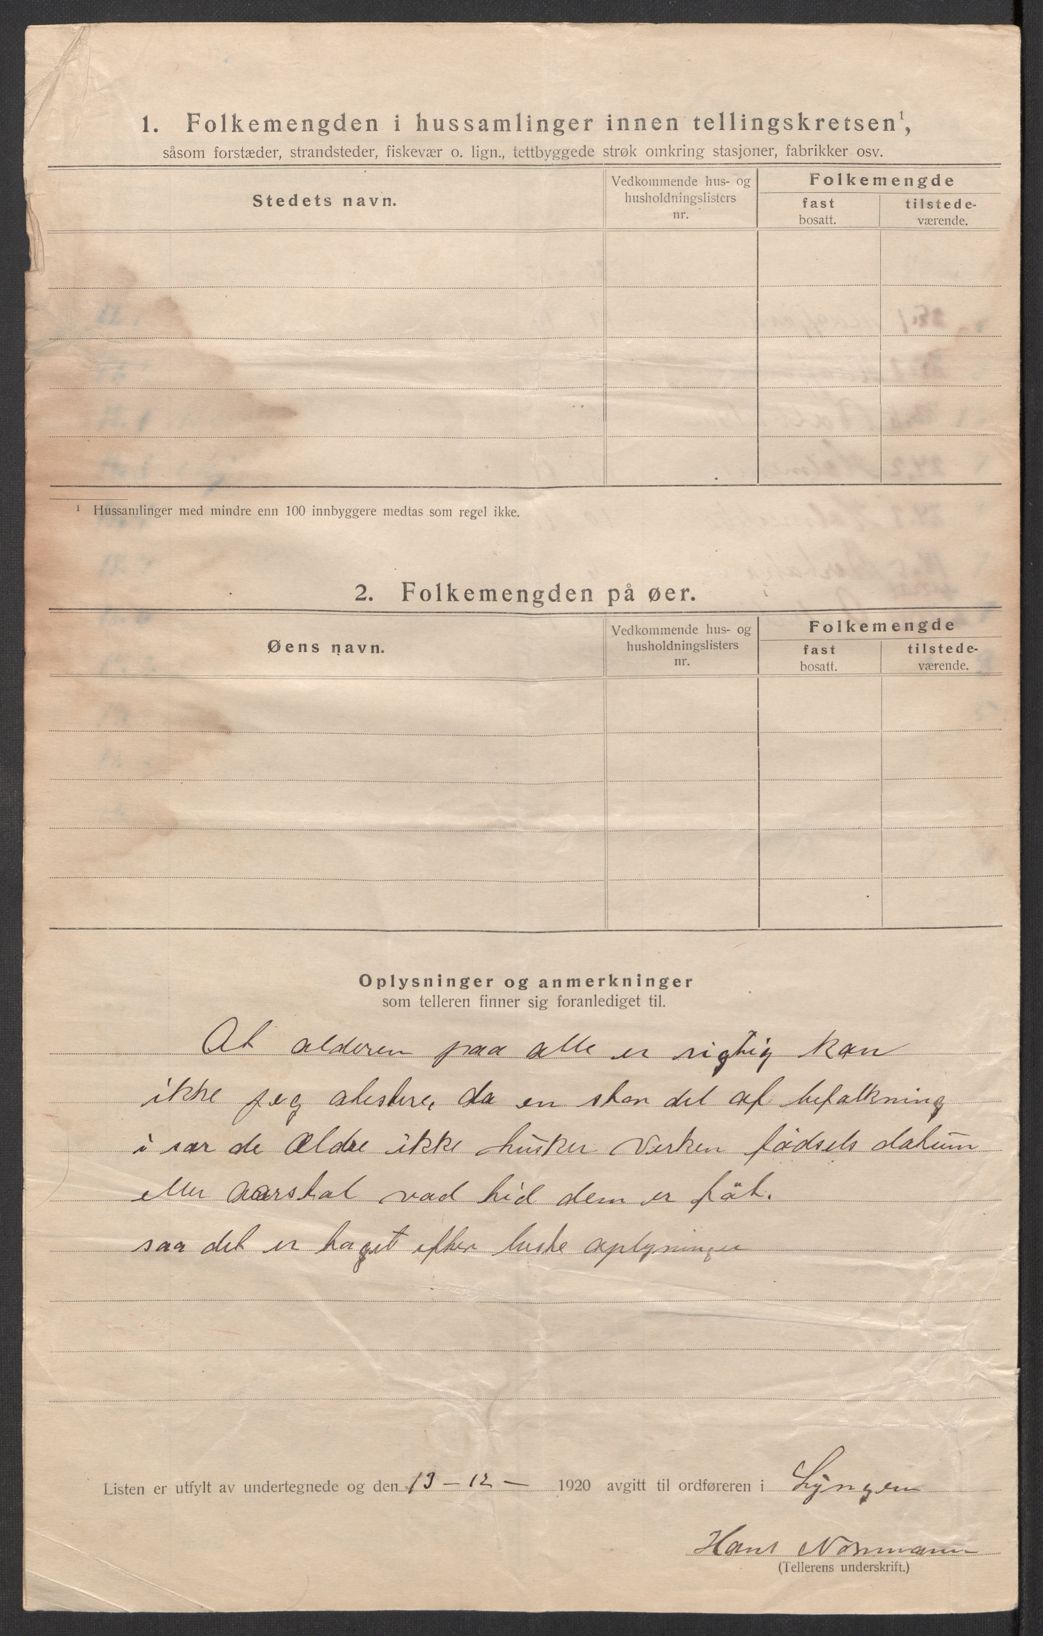 1. Folkemengden i hussamlinger innen tellingskretsen¹,
såsom forstæder, strandsteder, fiskevær o. lign., tettbyggede strøk omkring stasjoner, fabrikker osv.
Stedets navn.
Vedkommende hus- og
husholdningslisters
nr.
Folkemengde
fast
bosatt.
tilstede-
værende.
¹ Hussamlinger med mindre enn 100 innbyggere medtas som regel ikke.
2. Folkemengden på øer.
Øens navn.
Vedkommende hus- og
husholdningslisters
nr.
Folkemengde
fast
bosatt.
tilstede-
værende.
Oplysninger og anmerkninger
som telleren finner sig foranlediget til.
At alderen paa alle er rigtig kan
ikke jeg atestere, da en stor del af befalkning
i sær de Ældre ikke husker verken fødsels datum
eller aarstal vad tid dem er føt.
saa det er taget efter beste oplysninger
Listen er utfylt av undertegnede og den 13-12- 1920 avgitt til ordføreren i Lyngen
Hans Normann
(Tellerens underskrift.)